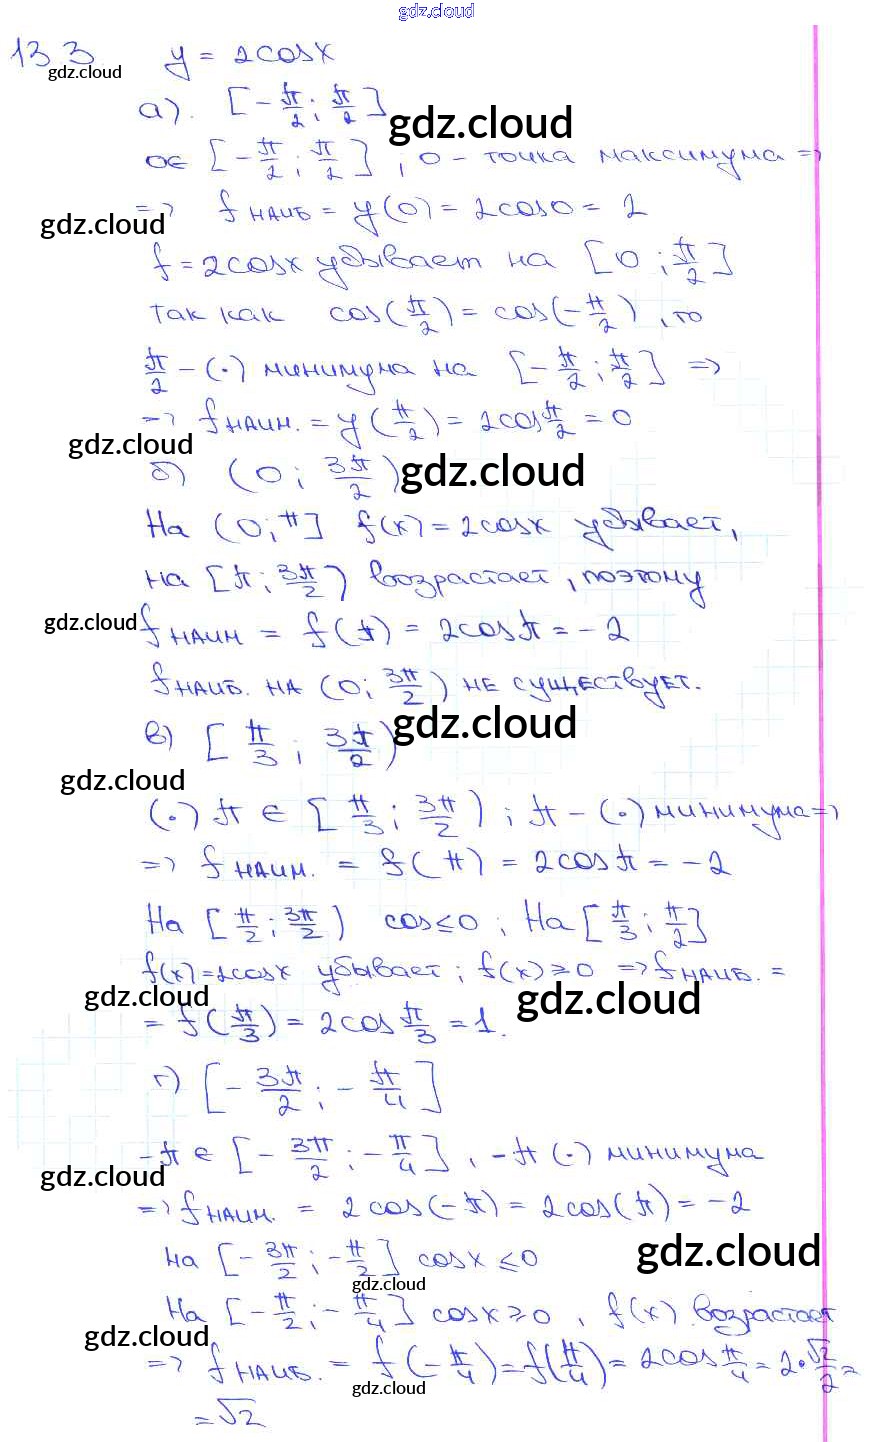 gdz.cloud
13.3 y = 2cosx
gdz.cloud
а). [-π/2; π/2]
gdz.cloud
0∈ [-π/2; π/2], 0 - точка максимума =>
=> fнаиб = y(0) = 2cos0 = 2
gdz.cloud
f = 2cosx убывает на [0; π/2]
так как cos(π/2) = cos(-π/2), то
π/2 - (·) минимума на [-π/2; π/2] =>
=> fнаим. = y(π/2) = 2cosπ/2 = 0
gdz.cloud
б) (0; 3π/2)
gdz.cloud
На (0; π] f(x) = 2cosx убывает,
на [π; 3π/2) возрастает, поэтому
gdz.cloud
fнаим = f(π) = 2cosπ = -2
fнаиб. на (0; 3π/2) не существует.
в) [π/3; 3π/2)
gdz.cloud
gdz.cloud
(·) π ∈ [π/3; 3π/2); π - (·) минимума =>
=> fнаим. = f(π) = 2cosπ = -2
На [π/2; 3π/2) cos≤0; На [π/3; π/2]
f(x) = 2cosx убывает; f(x)≥0 => fнаиб. =
gdz.cloud
gdz.cloud
= f(π/3) = 2cosπ/3 = 1.
г) [-3π/2; -π/4]
-π ∈ [-3π/2; -π/4], -π (·) минимума
gdz.cloud
=> fнаим. = 2cos(-π) = 2cos(π) = -2
на [-3π/2; -π/2] cosx ≤0
gdz.cloud
gdz.cloud
На [-π/2; -π/4] cosx≥0, f(x) возрастает
gdz.cloud
=> fнаиб. = f(-π/4) = f(π/4) = 2cosπ/4 = 2·√2/2 =
gdz.cloud
= √2